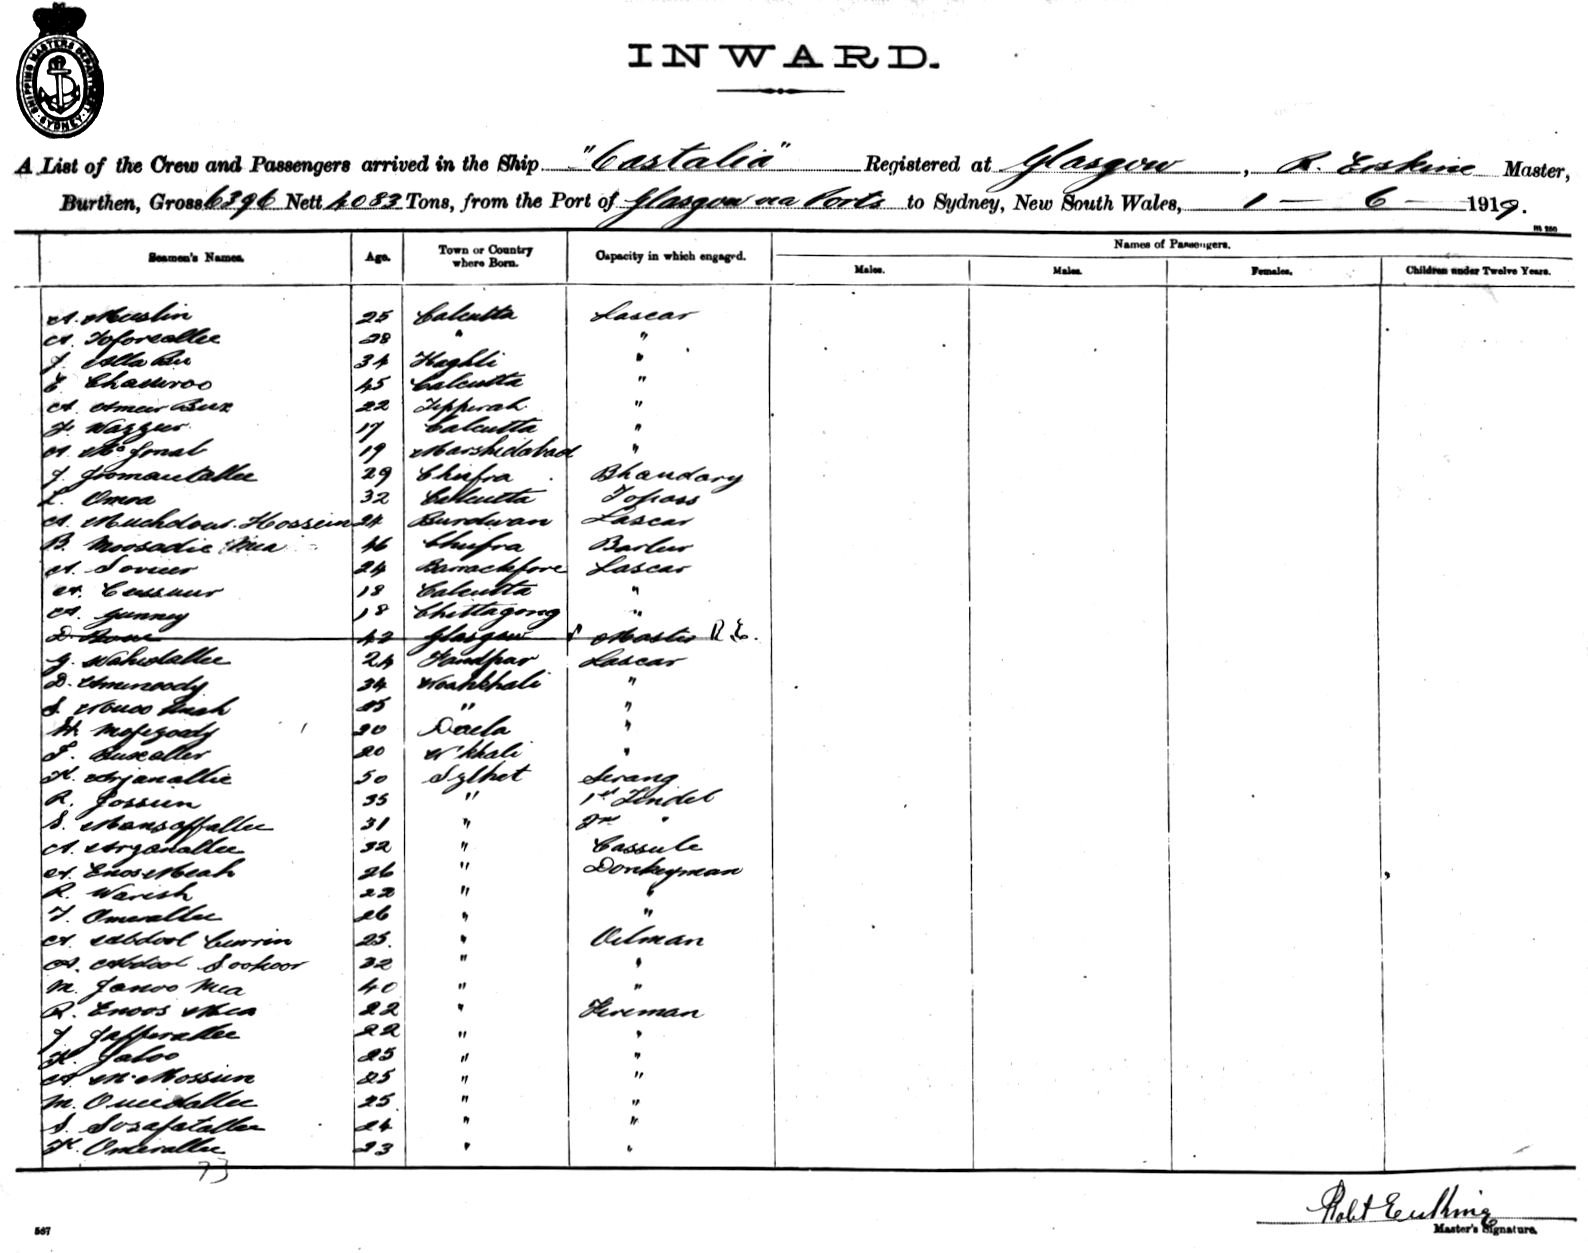 SHIPPING MASTERS DEPARTMENT SYDNEY
INWARD.
A List of the Crew and Passengers arrived in the Ship "Castalia" Registered at Glasgow, R. Erskine Master,
Burthen, Gross 6396 Nett 4083 Tons, from the Port of Glasgow via Ports to Sydney, New South Wales, 1 - 6 - 1919.
Seamen's Names. Age. Town or Country where Born. Capacity in which engaged. Names of Passengers.
Males. Males. Females. Children under Twelve Years.
A. Muslin 25 Calcutta Lascar
A. Toforeallee 28 " "
J. Alla Bu 34 Hughli "
E. Chamroo 45 Calcutta "
A. Ameer Bux 22 Tipperah "
J. Wazzur 17 Calcutta "
A. Md Jonab 19 Marshidabad "
J. Jromantallee 29 Chupra Bhandary
L. Omra 32 Calcutta Topass
A. Muchdous Hossein 24 Burdwan Lascar
B. Moosadie Mea 46 Chupra Barber
A. 24 Barrackpore Lascar
A. Cassuur 18 Calcutta "
A. Gunney 18 Chittagong "
D. 42 Glasgow Master R.E.
G. Wahedallee 24 Lascar
D. Aminoody 34 Noakhali "
S. 25 " "
H. Mofizoody 20 Dacca "
F. 20 N'khali "
K. Arjanallie 50 Sylhet Serang
R. Jossien 35 " 1st Tindel
S. Mansoffallee 31 " 2nd "
A. Arzanallee 32 " Cassule
A. Enos Meah 26 " Donkeyman
R. Warish 22 " "
T. Omerallee 26 " "
A. Abdool Currim 25. " Oilman
A. Abdool Sookoor 32 " "
M. Janoo Mea 40 " "
R. Enoos Mea 22 " Fireman
J. Jafferallee 22 " "
K. Jaloo 25 " "
A. M. Mossien 25 " "
M. Oueedallee 25 " "
S. Sozafatallee 24 " "
K. Omerallee 23 " "
73
Robt Erskine
Master's Signature.
567